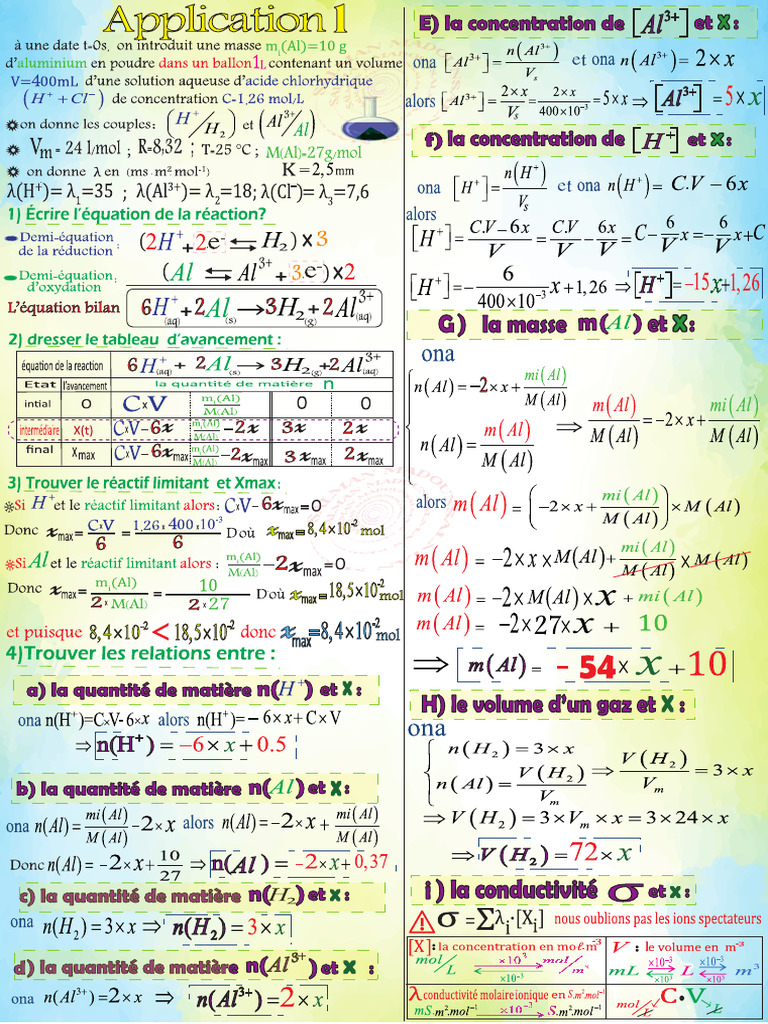 Application 1
à une date t-0s, on introduit une masse mᵢ(Al)=10 g
d'aluminium en poudre dans un ballon1L contenant un volume
V=400mL d'une solution aqueuse d'acide chlorhydrique
(H⁺ + Cl⁻) de concentration C=1,26 mol/L
on donne les couples: (H⁺/H₂) et (Al³⁺/Al)
Vm = 24 l/mol ; R=8,32 ; T=25 °C ; M(Al)=27g/mol
on donne λ en (ms.m² mol⁻¹) K = 2,5 mm
λ(H⁺)= λ₁=35 ; λ(Al³⁺)= λ₂=18; λ(Cl⁻)= λ₃=7,6
1) Écrire l'équation de la réaction?
Demi-équation de la réduction : (2H⁺+2e⁻ ⇆ H₂) x3
Demi-équation d'oxydation : (Al ⇆ Al³⁺+3.e⁻)x2
L'équation bilan 6H⁺(aq)+2Al(s) →3H₂(g)+2Al³⁺(aq)
2) dresser le tableau d'avancement :
équation de la reaction 6H⁺(aq) + 2Al(s) →3H₂(g)+2Al³⁺(aq)
Etat l'avancement la quantité de matière n
intial 0 CxV mᵢ(Al)/M(Al) 0 0
intermédiaire X(t) CxV-6x mᵢ(Al)/M(Al) -2x 3x 2x
final Xmax CxV-6xmax mᵢ(Al)/M(Al) -2xmax 3xmax 2xmax
3) Trouver le réactif limitant et Xmax:
Si H⁺ et le réactif limitant alors: CxV-6xmax=0
Donc xmax= CxV/6 = 1,26x400x10⁻³/6 Doù xmax=8,4×10⁻² mol
Si Al et le réactif limitant alors : mᵢ(Al)/M(Al) -2xmax=0
Donc xmax= mᵢ(Al)/2xM(Al) = 10/2x27 Doù xmax=18,5×10⁻² mol
et puisque 8,4×10⁻² < 18,5×10⁻² donc xmax=8,4×10⁻² mol
4)Trouver les relations entre :
a) la quantité de matière n(H⁺) et X :
ona n(H⁺)=CxV-6×x alors n(H⁺)=-6×x+C×V
⇒ n(H⁺) = -6 × x + 0.5
b) la quantité de matière n(Al) et X :
ona n(Al)= mi(Al)/M(Al) -2×x alors n(Al)=-2×x + mi(Al)/M(Al)
Donc n(Al) = -2×x+ 10/27 ⇒ n(Al) = -2×x+ 0,37
c) la quantité de matière n(H₂) et X :
ona n(H₂)=3×x ⇒ n(H₂) = 3×x
d) la quantité de matière n(Al³⁺) et X :
ona n(Al³⁺)=2×x ⇒ n(Al³⁺)=2×x
E) la concentration de [Al³⁺] et X :
ona [Al³⁺] = n(Al³⁺)/Vs et ona n(Al³⁺)= 2×x
alors [Al³⁺] = 2×x/Vs = 2×x/400×10⁻³ =5×x ⇒ [Al³⁺]=5×x
f) la concentration de [H⁺] et X :
ona [H⁺] = n(H⁺)/Vs et ona n(H⁺)= C.V -6x
alors
[H⁺]= C.V-6x/V = C.V/V - 6x/V =C- 6/V x=- 6/V x+C
[H⁺]=- 6/400×10⁻³ x+1,26 ⇒ [H⁺]=-15x+1,26
G) la masse m(Al) et X:
ona
n(Al)=-2×x+ mi(Al)/M(Al)
n(Al)= m(Al)/M(Al) ⇒ m(Al)/M(Al) =-2×x+ mi(Al)/M(Al)
alors m(Al) = (-2×x+ mi(Al)/M(Al))×M(Al)
m(Al) = -2×x×M(Al)+ mi(Al)/M(Al) ×M(Al)
m(Al) = -2×M(Al)×x + mi(Al)
m(Al) = -2×27×x + 10
⇒ m(Al) = - 54× x +10
H) le volume d'un gaz et X :
ona
n(H₂)=3×x
n(Al)= V(H₂)/Vm ⇒ V(H₂)/Vm =3×x
⇒V(H₂)=3×Vm×x=3×24×x
⇒V(H₂)=72×x
i) la conductivité σ et x :
⚠ σ =∑λi·[Xi] nous oublions pas les ions spectateurs
[X] : la concentration en moℓ.m⁻³ V : le volume en m⁻³
mol/L ×10³ ×10⁻³ mol/m³ mL ×10⁻³ ×10³ L ×10⁻³ ×10³ m³
λ conductivité molaire ionique en S.m².mol⁻¹
mS.m².mol⁻¹ ×10⁻³ S.m².mol⁻¹ mol/L C•V L